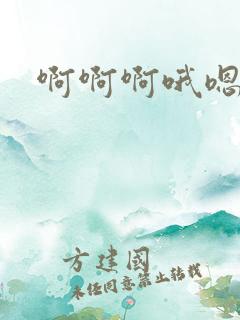 啊啊啊哦嗯
方建國
未经同意禁止转载